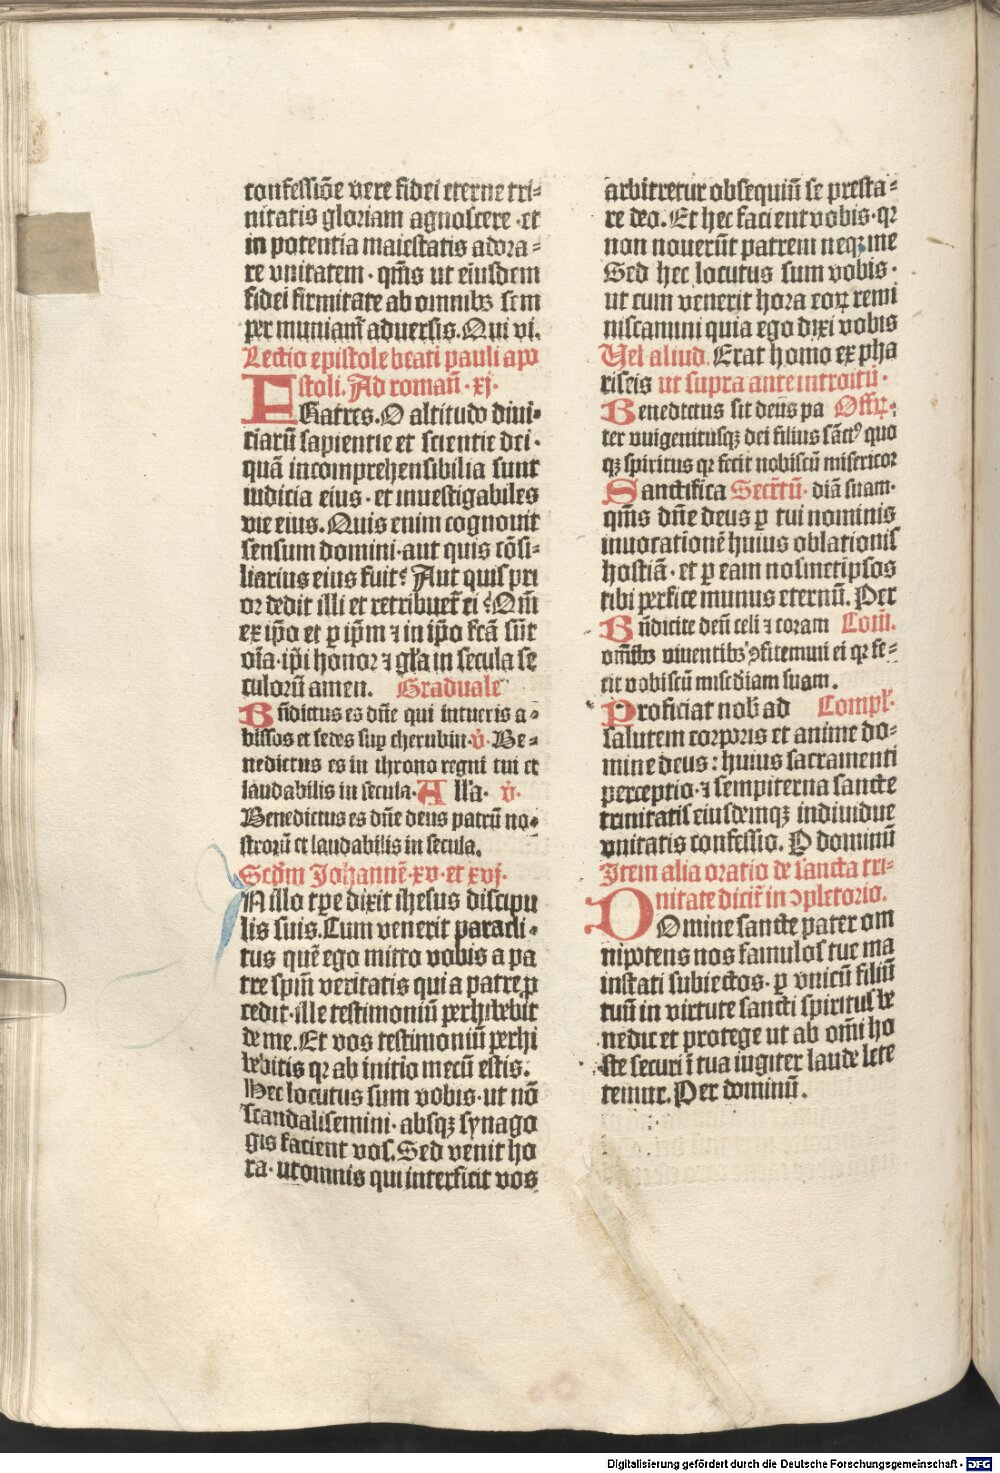 confessiōe vere fidei eterne tri⸗
nitatis gloriam agnoscere ·et
in potentia maiestatis adora⸗
re vnitatem · qm̄s ut eiusdem
fidei firmitate ab omnibꝫ sem
per muniamͬ aduersis. Qui vi.
Lectio epistole beati pauli apo
stoli. Ad romań · xj·
FRatres. O altitudo diui⸗
ciarū sapientie et scientie dei ·
quā incomprehensibilia sunt
iudicia eius · et inuestigabiles
vie eius. Quis enim cognouit
sensum domini · aut quis cōsi⸗
liarius eius fuit? Aut quis pri
or dedit illi et retribuet̄ ei ? Qm̄
ex ip̄o et ꝑ ip̄m ⁊ in ip̄o fcā sūt
oīa · ip̄i honor ⁊ gl̄a in secula se
culorū amen. Graduale
Bn̄dictus es dn̄e qui intueris a⸗
bissos et sedes suꝑ cherubin · v̄· Be⸗
nedictus es in throno regni tui et
laudabilis in secula · All'a· v̄·
Benedictus es dn̄e deus patrū no⸗
strorū et laudabilis in secula.
Scd̄m Johannē · xv · et xvj·
IN illo tp̄e dixit ihesus discipu
lis suis. Cum venerit paracli⸗
tus quē ego mitto vobis a pa
tre spm̄ veritatis qui a patre ꝓ
cedit · ille testimoniū perhibebit
de me. Et vos testimoniū perhi
bebitis qꝛ ab initio mecū estis.
Hec locutus sum vobis · ut nō
scandalisemini · absqꝫ synago
gis facient vos. Sed venit ho
ra · ut omnis qui interficit vos
arbitretur obsequiū se presta⸗
re deo. Et hec facient vobis · qꝛ
non nouerūt patrem neqꝫ me
Sed hec locutus sum vobis ·
ut cum venerit hora eoꝝ remi
niscamini quia ego dixi vobis
Vel aliud. Erat homo ex pha
riseis ut supra ante introitū ·
Benedictus sit deus pa Offr̄·
ter vnigenitusqꝫ dei filius sāctꝰ quo
qꝫ spiritus qꝛ fecit nobiscū misericor
Sanctifica Secr̄tū· diā suam·
qm̄s dn̄e deus ꝑ tui nominis
inuocationē huius oblationis
hostiā · et ꝑ eam nosmetipsos
tibi perfice munus eternū. Per
Bn̄dicite deū celi ⁊ coram Com̄.
om̄ibꝫ viuentibꝫ ꝯfitemini ei qꝛ fe⸗
cit vobiscū mis̄diam suam.
Proficiat nob̄ ad Compl̄·
salutem corporis et anime do⸗
mine deus : huius sacramenti
perceptio · ⁊ sempiterna sancte
trinitatis eiusdemqꝫ indiuidue
vnitatis confessio. P dominū
Item alia oratio de sancta tri⸗
nitate dicit̄ in ꝯpletorio.
DOmine sancte pater om
nipotens nos famulos tue ma
iestati subiectos · ꝑ vnicū filiū
tuū in virtute sancti spiritus be
nedic et protege ut ab om̄i ho
ste securi ī tua iugiter laude lete
temur. Per dominū.
Digitalisierung gefördert durch die Deutsche Forschungsgemeinschaft - DFG